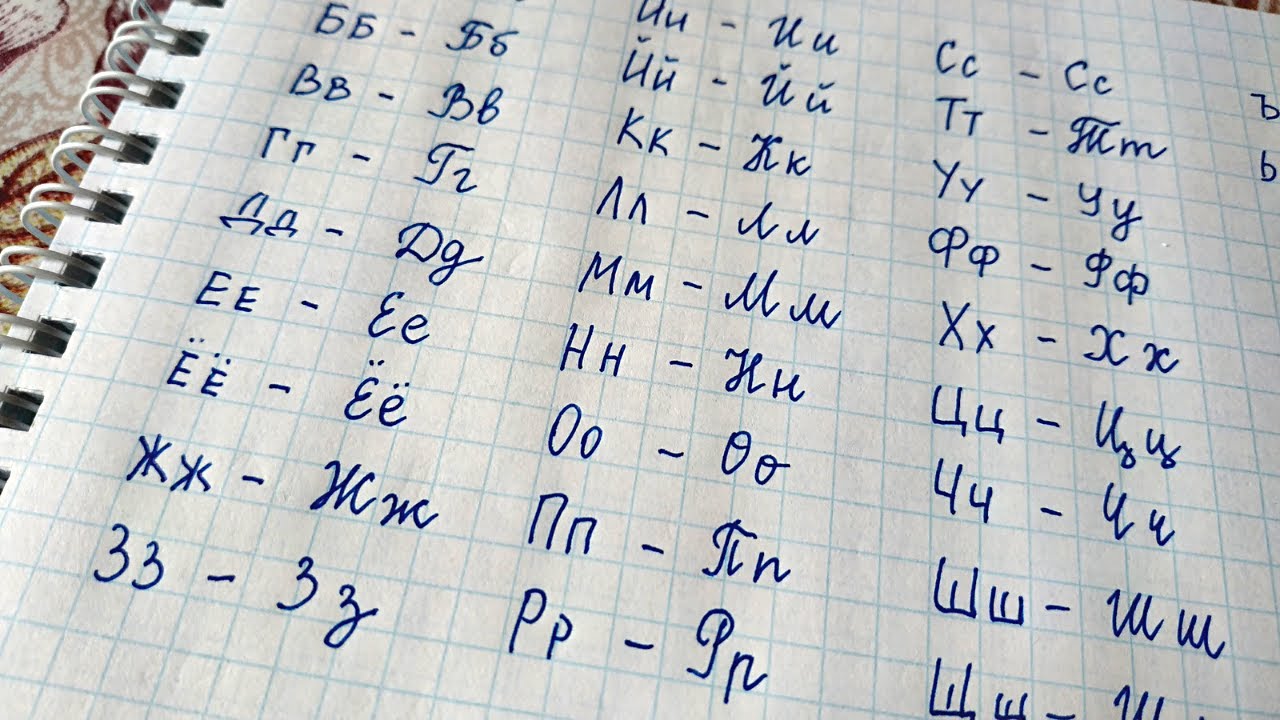 Бб - Бб
Вв - Вв
Гг - Гг
Дд - Дд
Ее - Ее
Ёё - Ёё
Жж - Жж
Зз - Зз
Ии - Ии
Йй - Йй
Кк - Кк
Лл - Лл
Мм - Мм
Нн - Нн
Оо - Оо
Пп - Пп
Рр - Рр
Сс - Сс
Тт - Тт
Уу - Уу
Фф - Фф
Хх - Хх
Цц - Цц
Чч - Чч
Шш - Шш
Щщ - Щ
Ъ
Ь